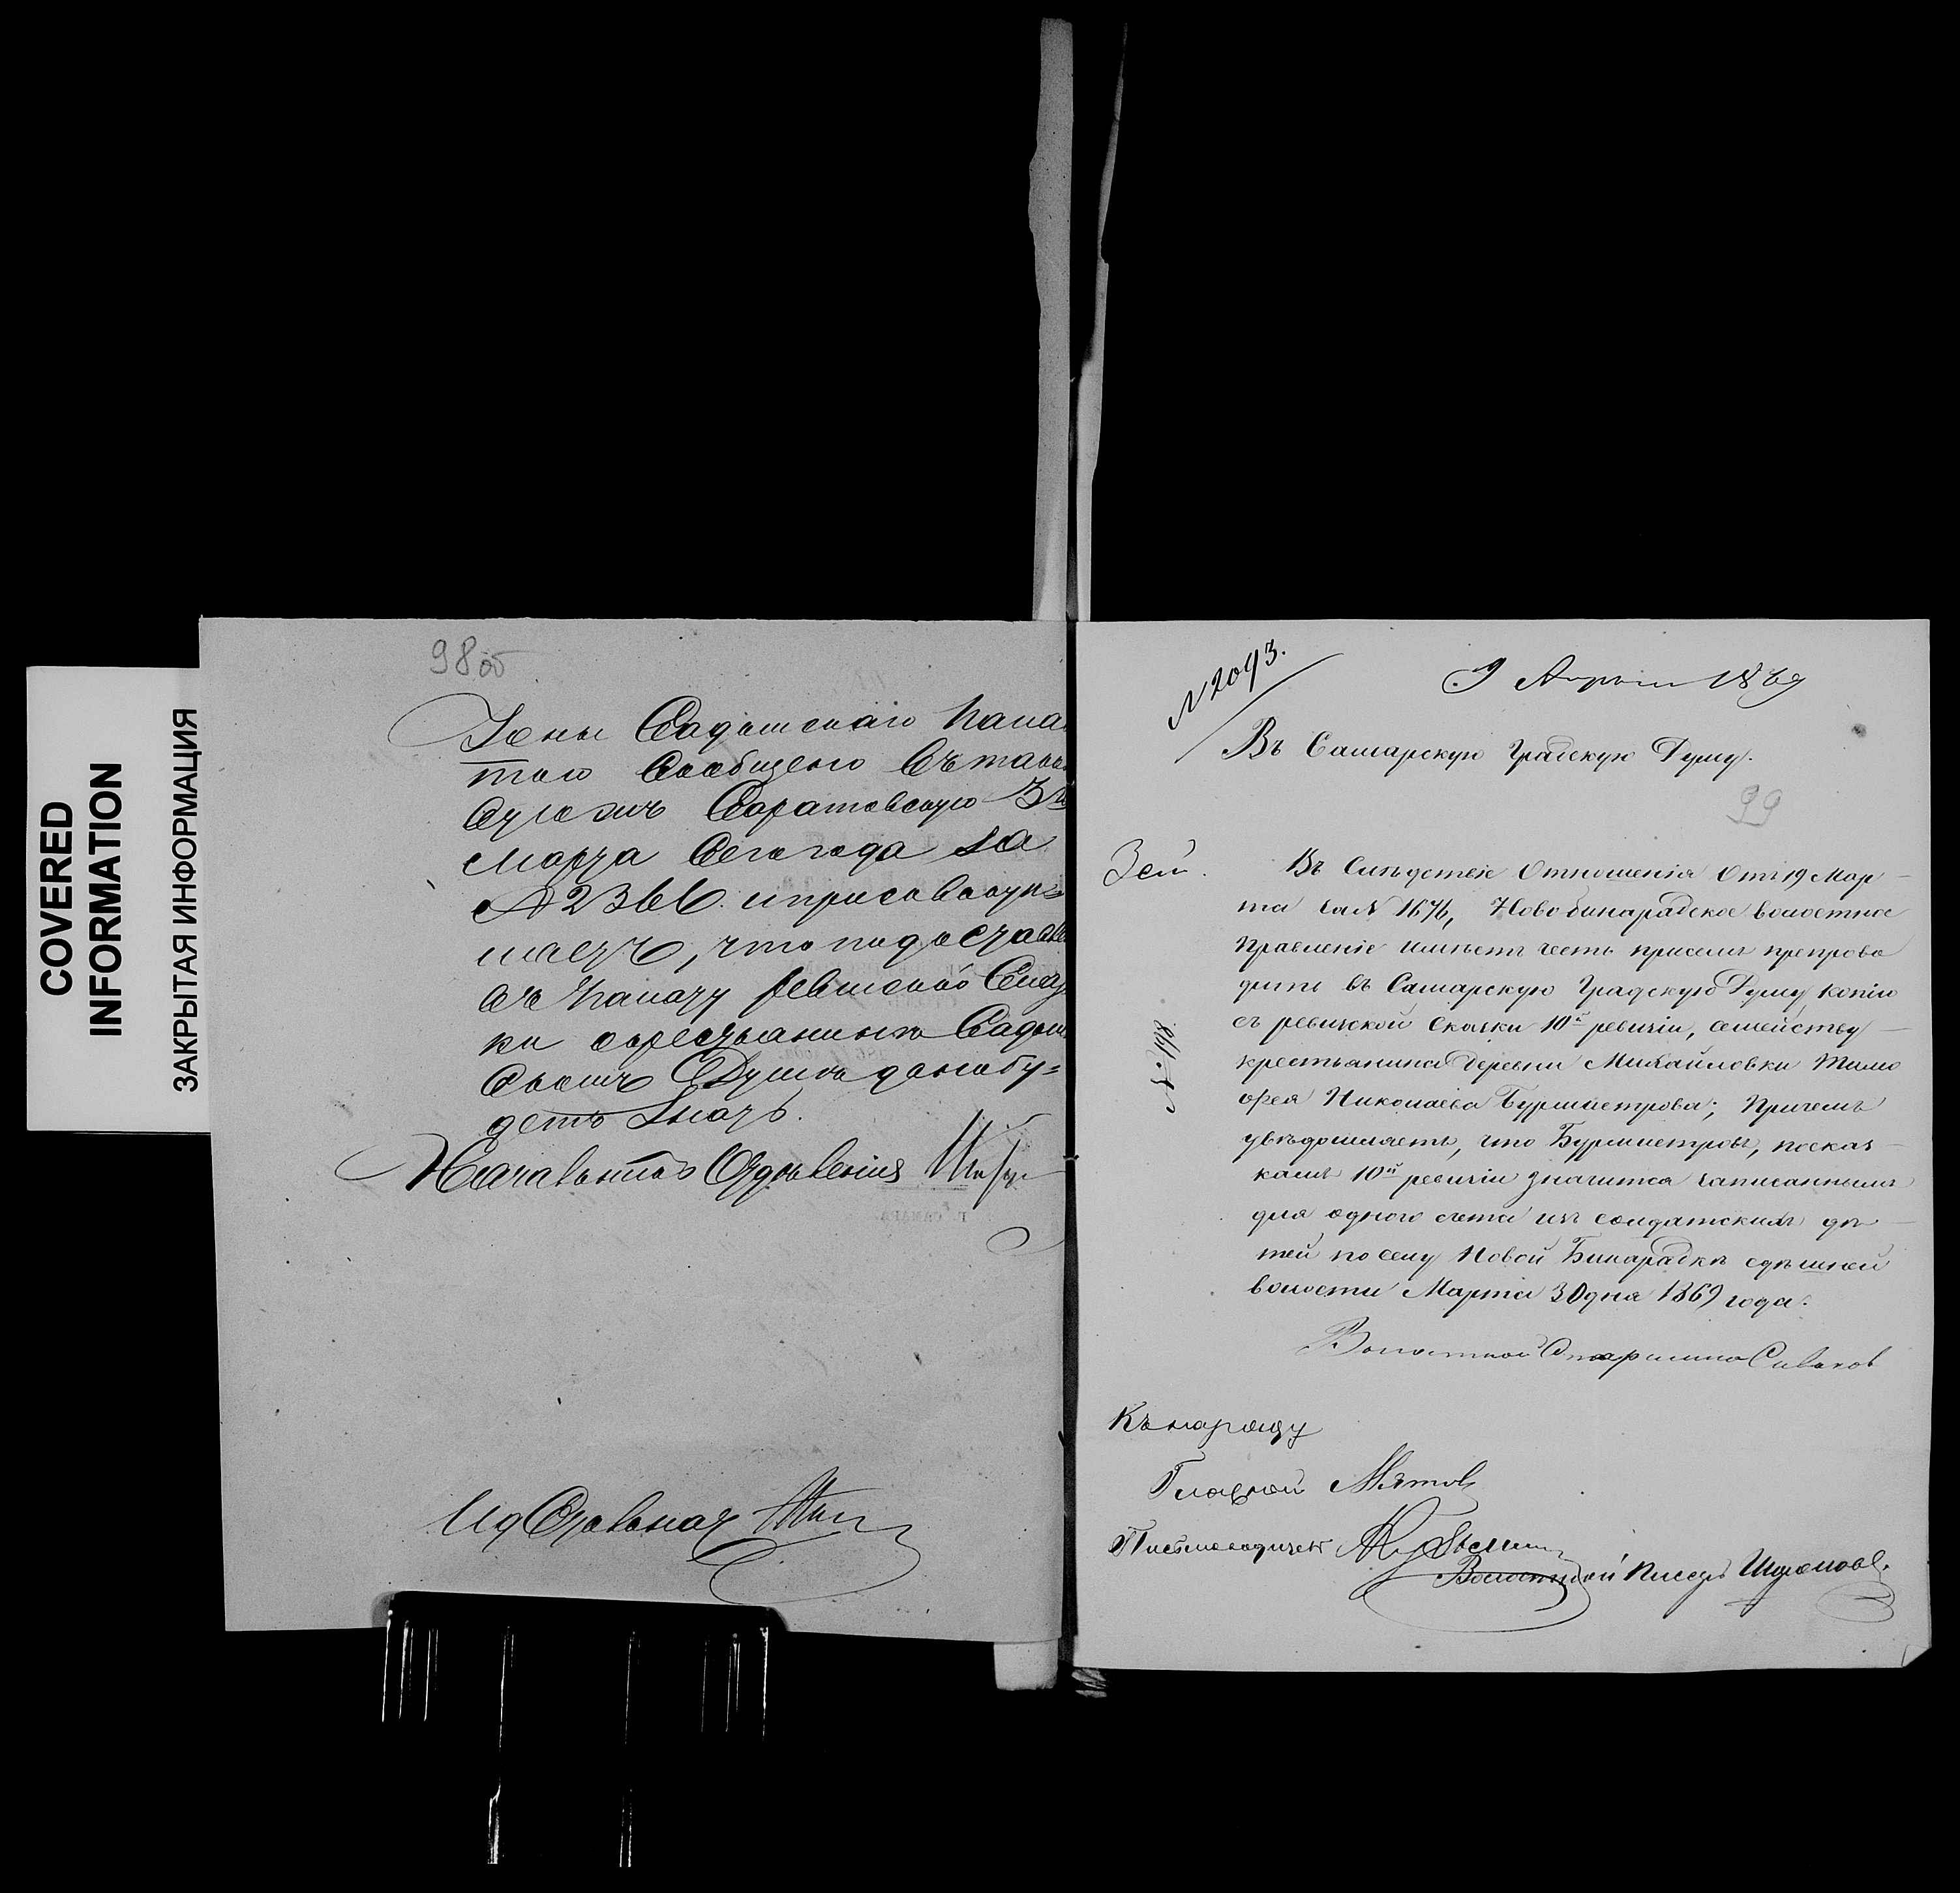 COVERED
INFORMATION
ЗАКРЫТАЯ ИНФОРМАЦИЯ
98 об
Жены Садомскаго Пала
тою сообщено въ таков
Саратовскую 3
Марта сего года за
№ 2366. и присовокуп=
ляетъ, что по доставле
въ Палату ревизской Сказ
ки о крестьянинѣ Садом
скомъ Думѣ дано бу=
детъ знать.
Начальникъ Отдѣленія
№ 2093.
9 Апрѣля 1869
Въ Самарскую Градскую Думу.
99
Въ Слѣдствіе Отношенія Отъ 19 Мар
та за № 1676, Новобинарадское волостное
Правленіе имѣетъ честь при семъ препрово
дить въ Самарскую Градскую Думу копію
съ ревизской Сказки 10й ревизіи, семейству
крестьянина деревни Михайловки Тимо
фея Николаева Бурмистрова; Причемъ
увѣдомляетъ, что Бурмистровъ, по сказ
камъ 10й ревизіи значится записаннымъ
для одного счета изъ солдатскихъ дѣ
тей по селу Новой Бинарадкѣ сдѣшней
волости Марта 30 дня 1869 года.
Волостной Старшина Сиваков
№ 1198.
Къ наряду
Гласной
Письмоводитель
Волостной Писарь